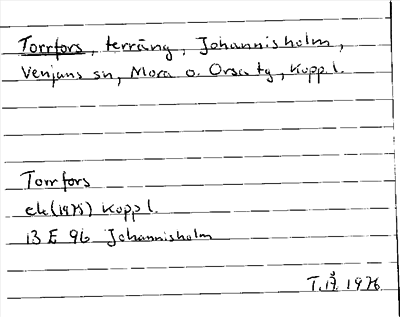 Torrfors, terräng, Johannisholm,
Venjans sn, Mora o. Orsa tg, Kopp l.
Torrfors
ek (1975) Kopp l.
13 E 9b Johannisholm
1976